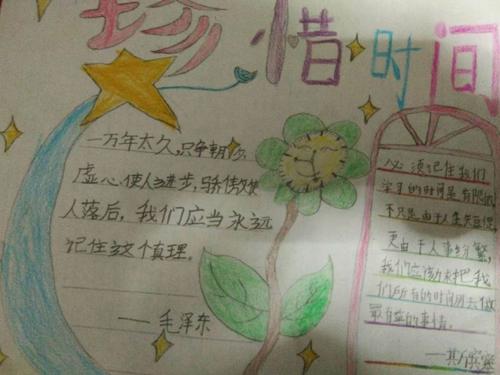 珍惜时间
一万年太久,只争朝夕。
虚心使人进步,骄傲使
人落后,我们应当永远
记住这个真理。
——毛泽东
必须记住我们
学习的时间是有限的。
不只是由于人生短促,
更由于人事纷繁,
我们应该力求把我
们所有的时间用去做
最有益的事情。